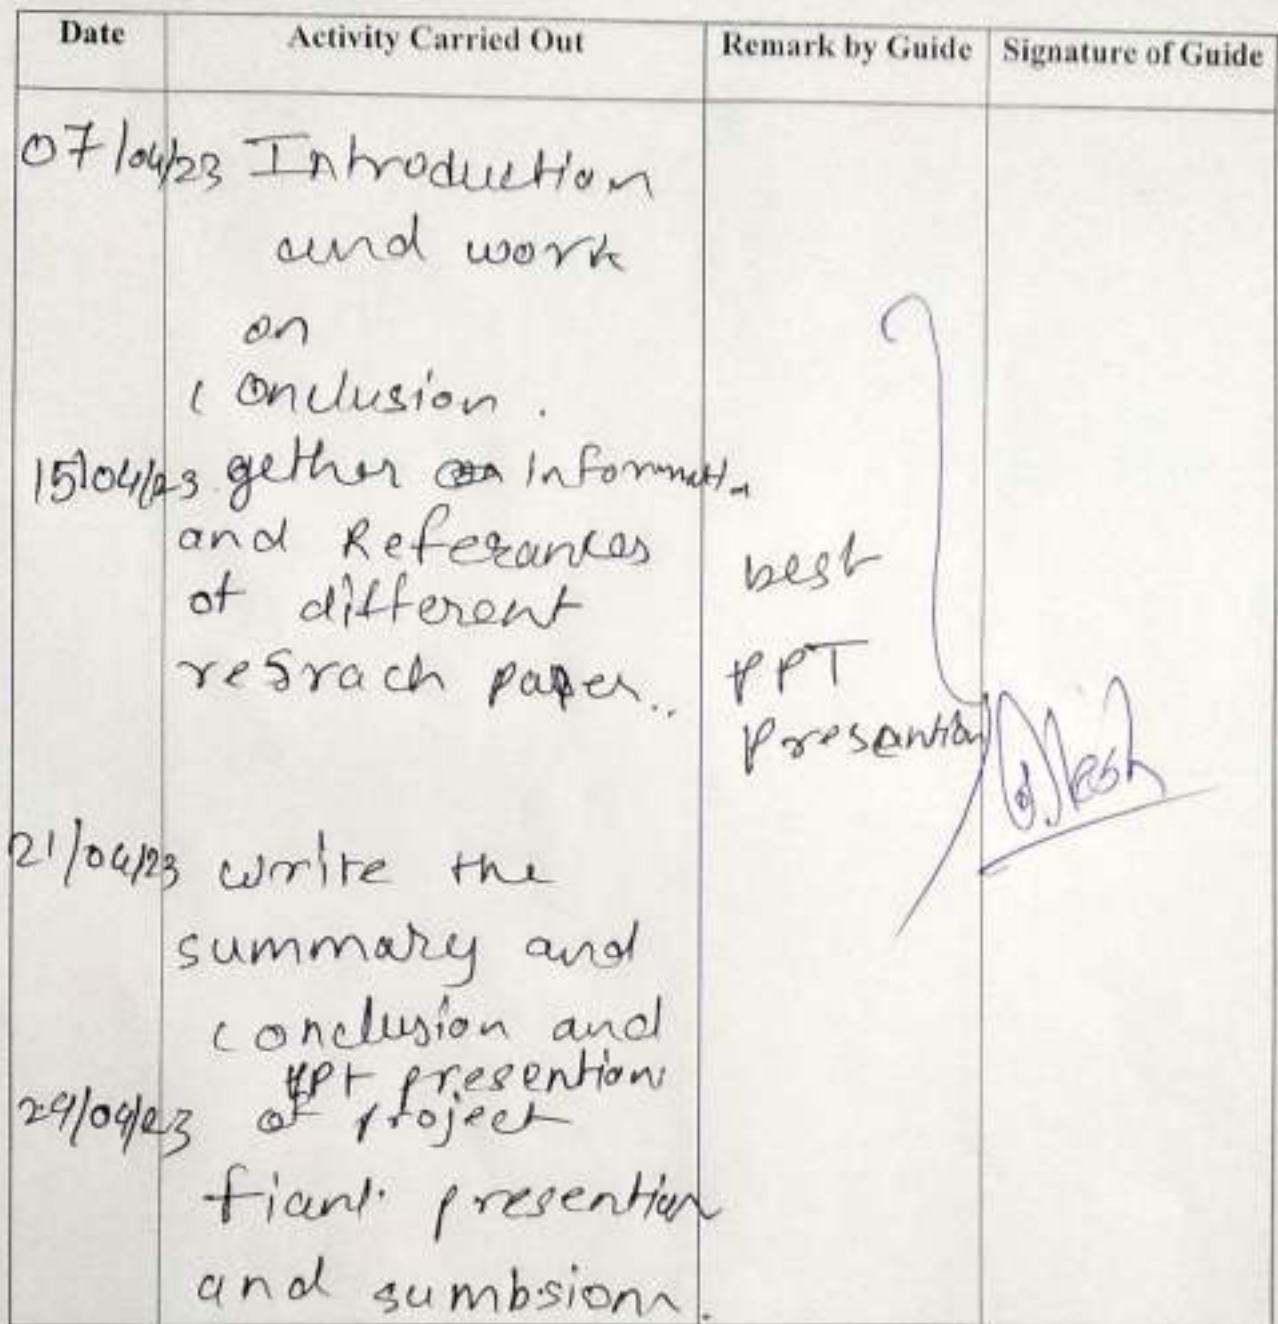 Date Activity Carried Out Remark by Guide Signature of Guide
07/04/23 Introduction
and work
on
conclusion.
15/04/23 gether informatin
and Referances
of different
resrach paper..
best
PPT
Presantion
21/04/23 write the
summary and
conclusion and
ppt presention
29/04/23 of project
fianl. presention
and sumbsionn.